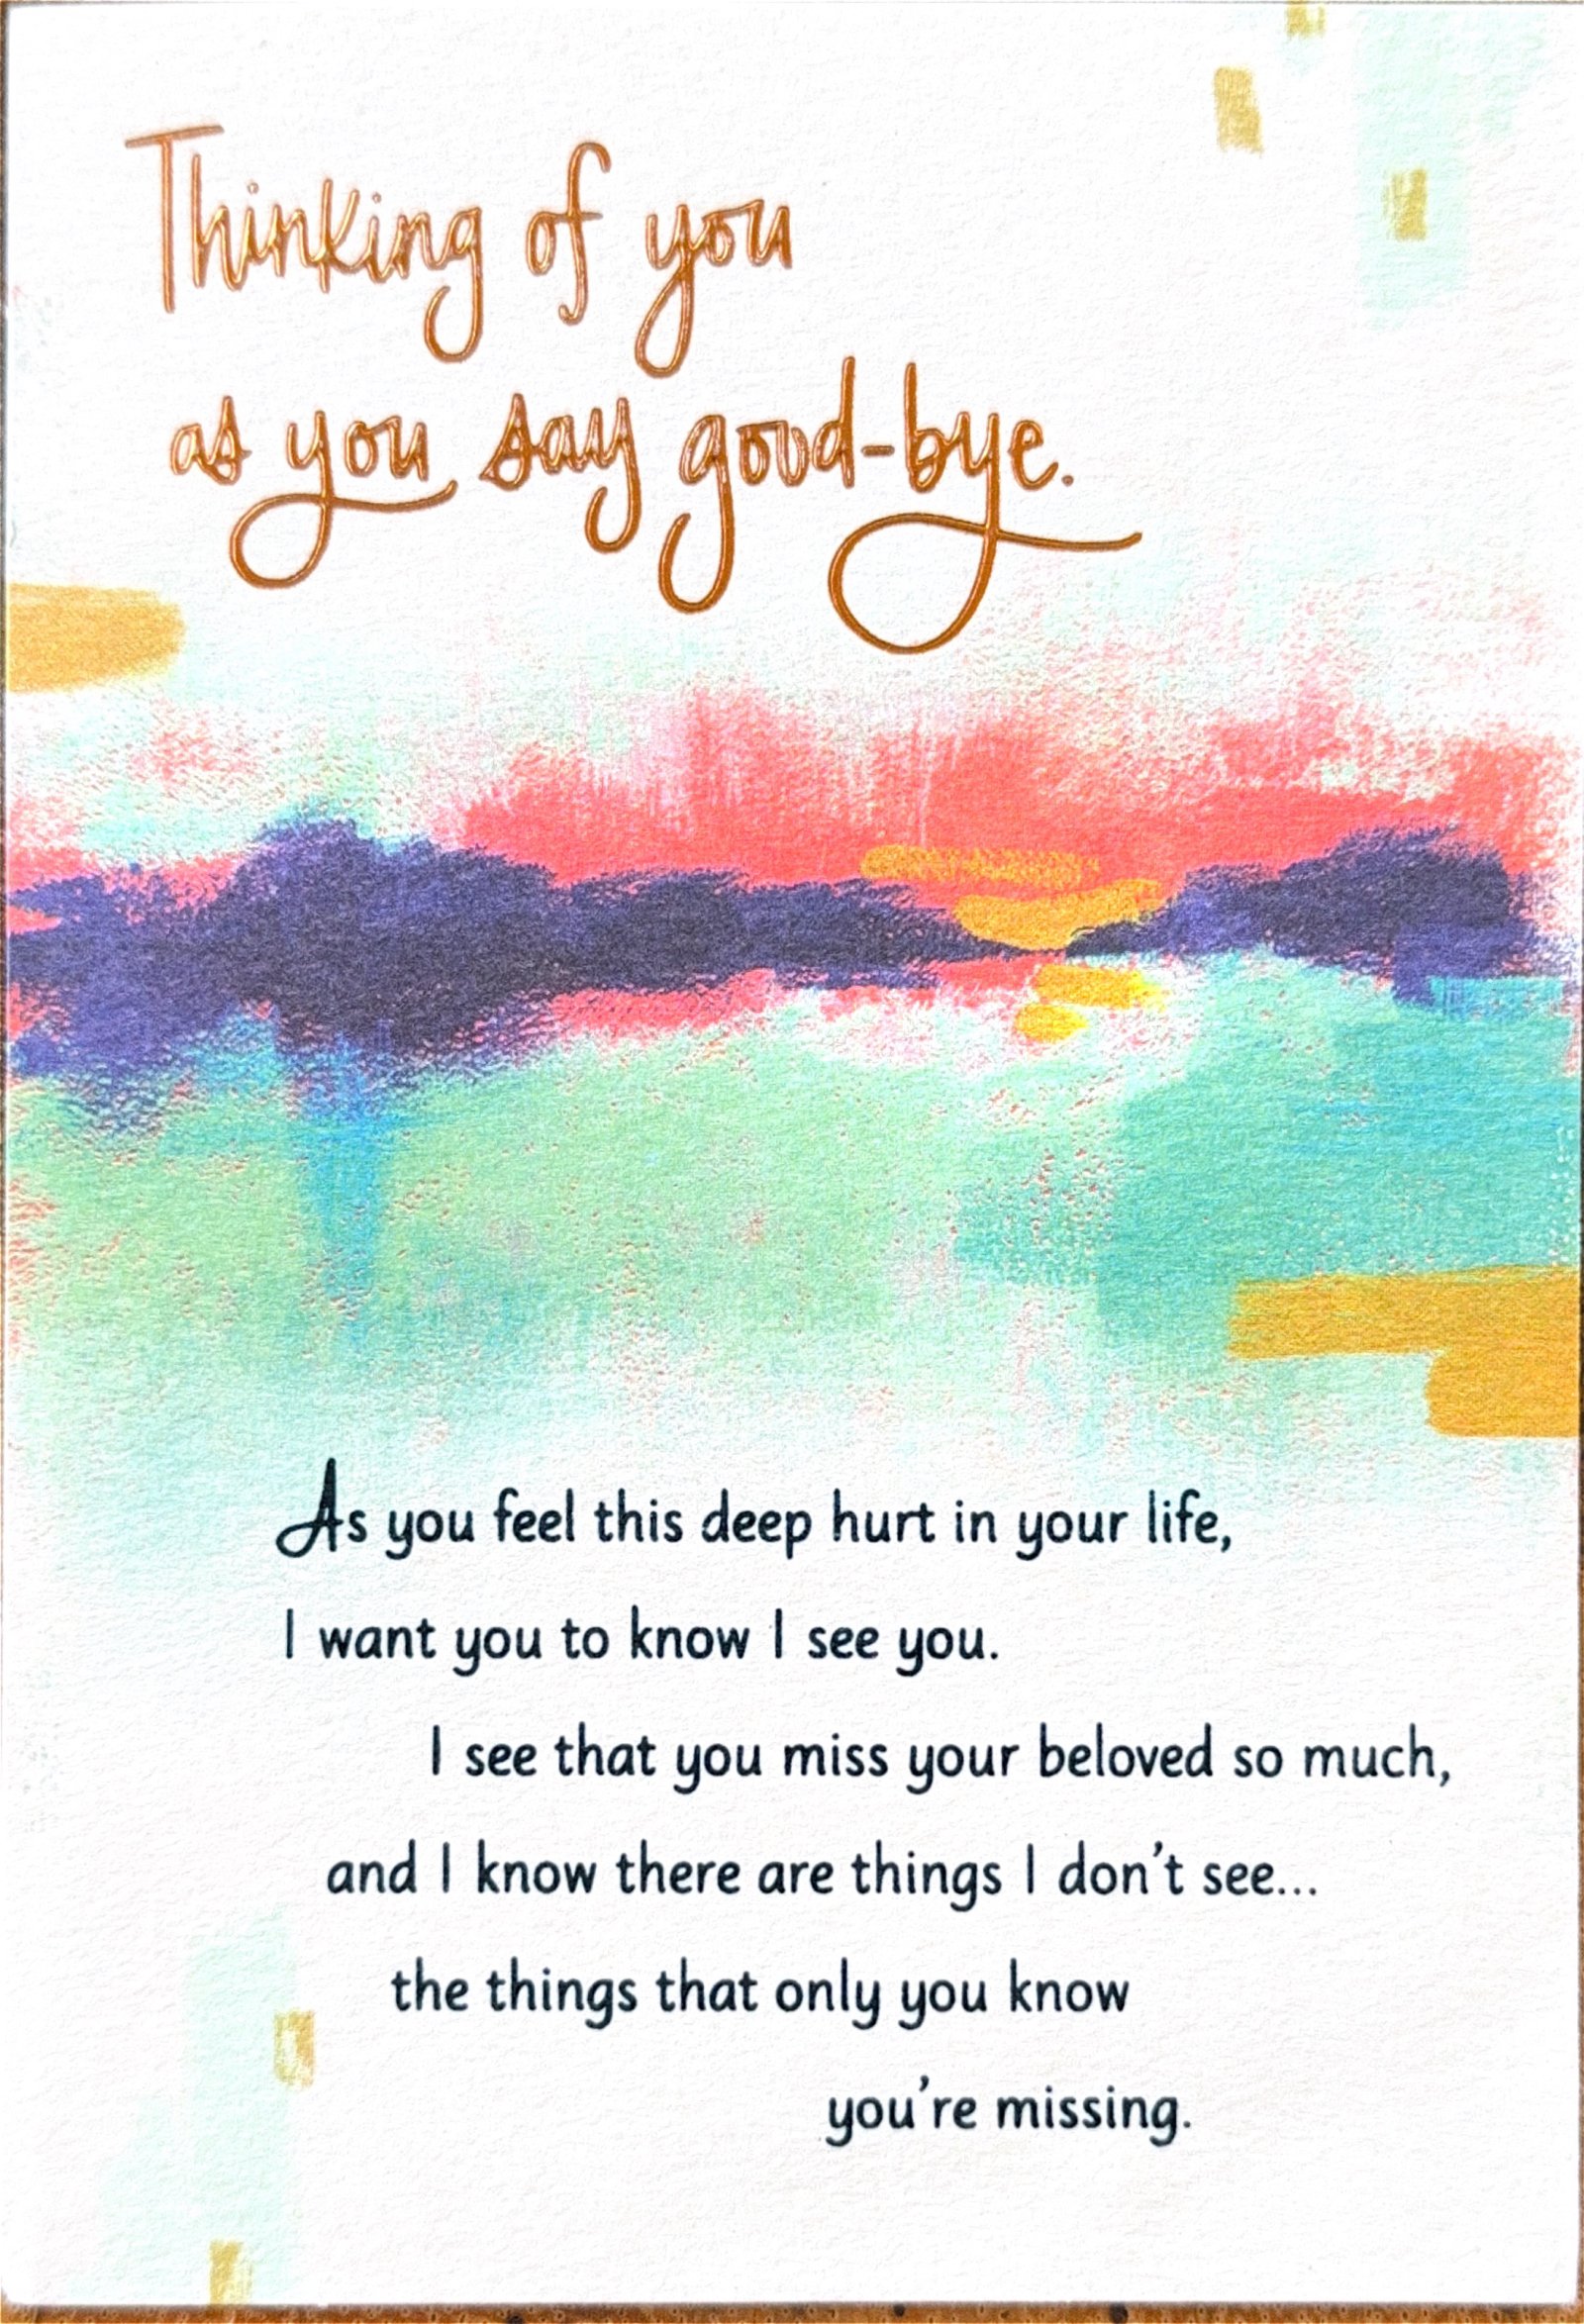 Thinking of you
as you say good-bye.
As you feel this deep hurt in your life,
I want you to know I see you.
I see that you miss your beloved so much,
and I know there are things I don't see...
the things that only you know
you're missing.